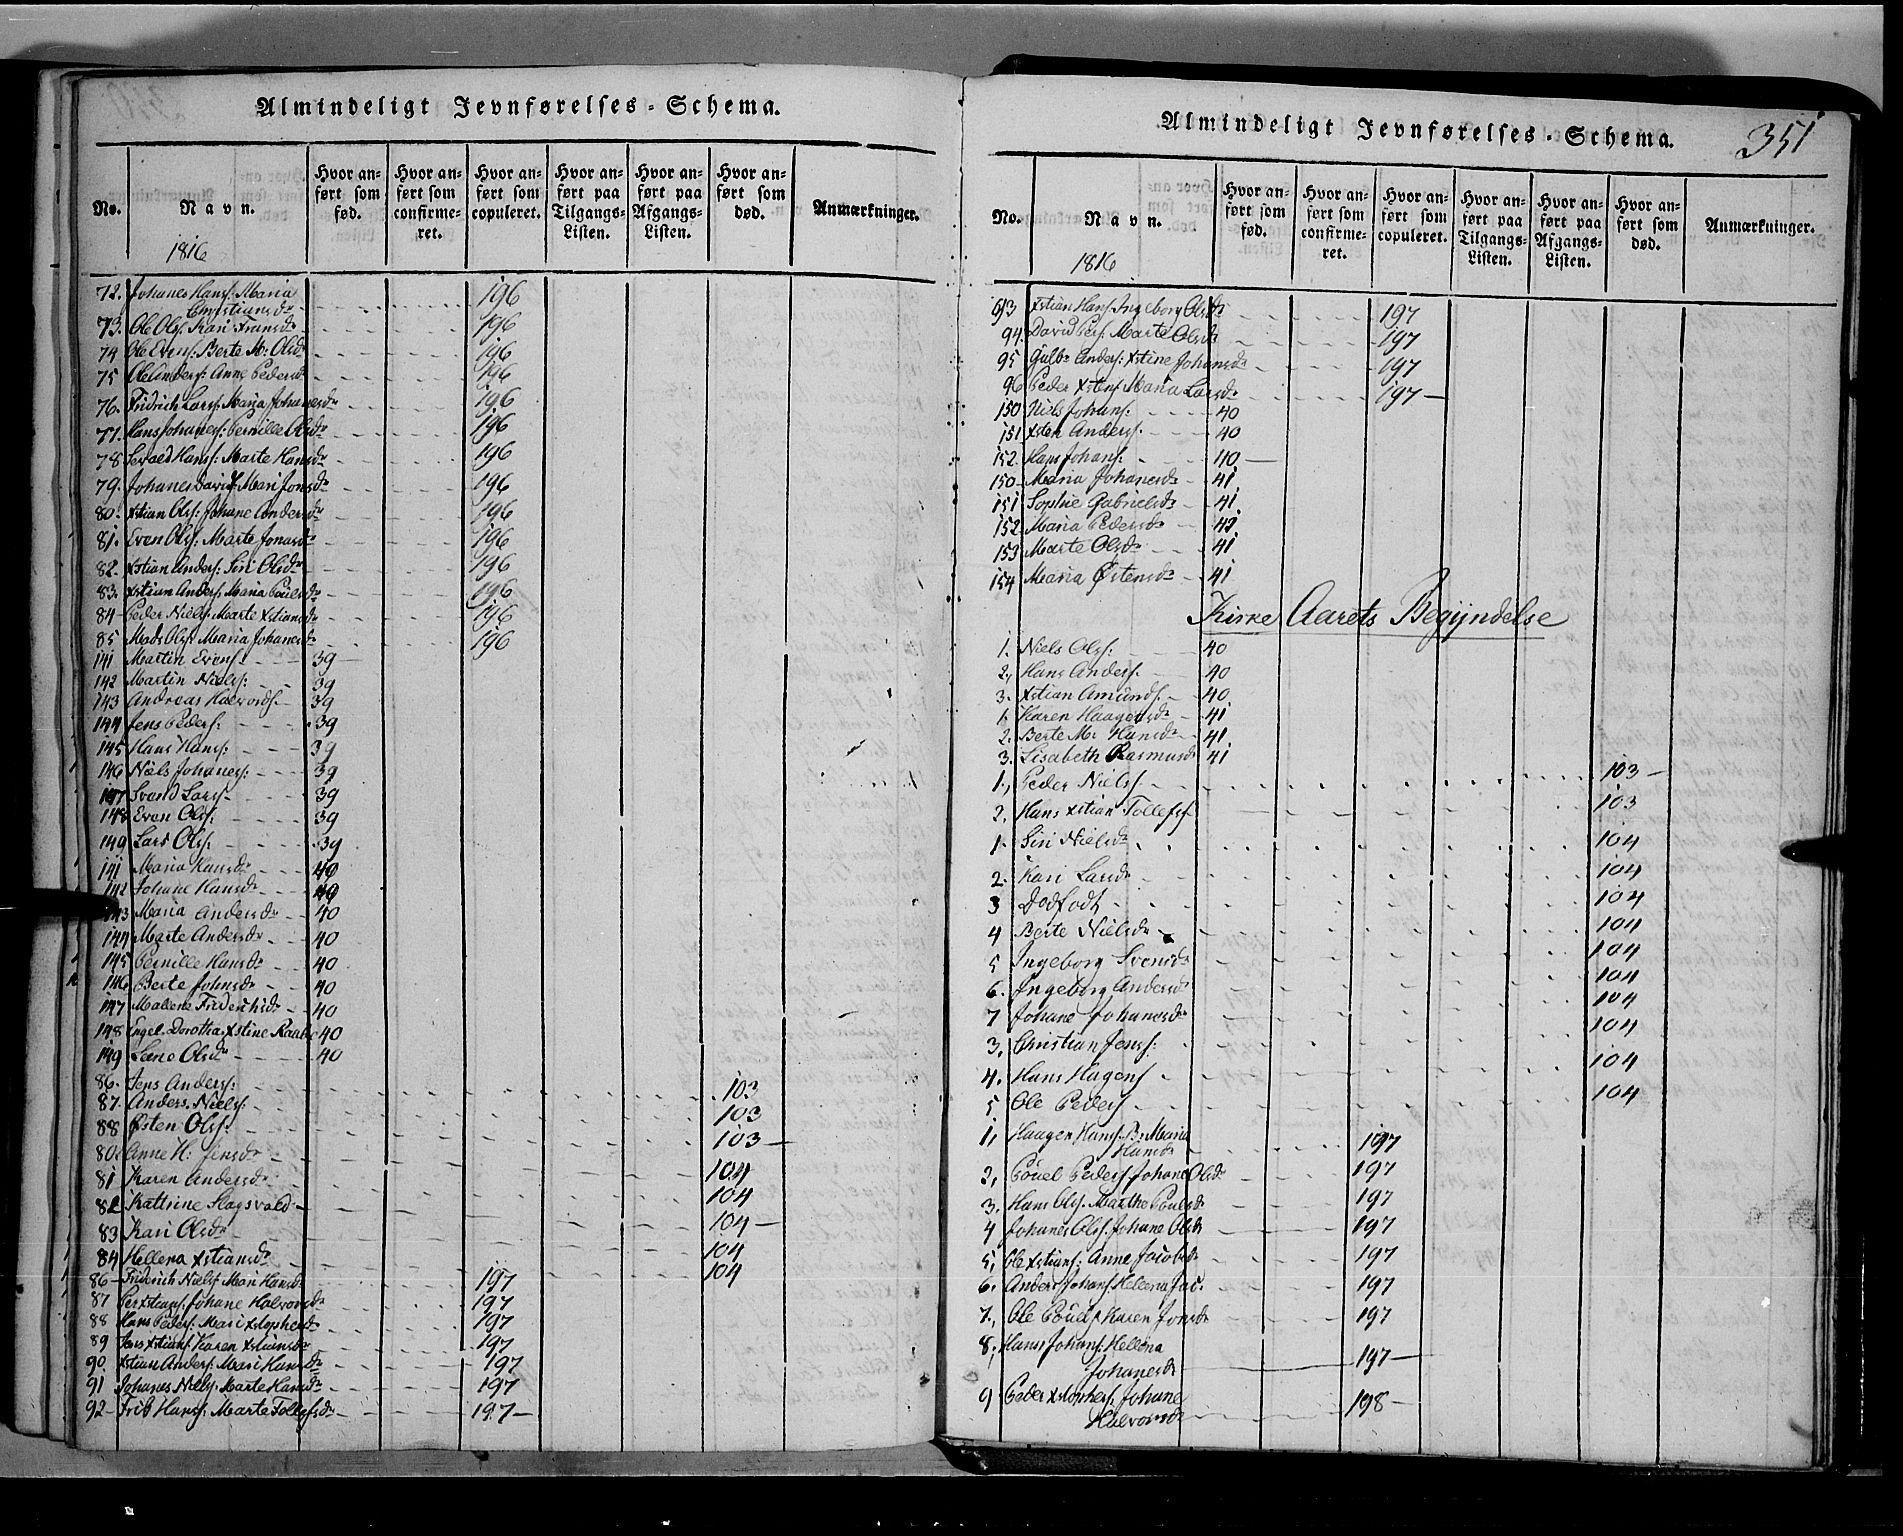 Almindeligt Jevnførelses-Schema.
No. Navn. Hvor anført som fød. Hvor anført som confirmeret. Hvor anført som copuleret. Hvor anført paa Tilgangs-Listen. Hvor anført paa Afgangs-Listen. Hvor anført som død. Anmærkninger.
1816
72. Johanes Hans: Maria
Christiansdr 196
73. Ole Ols: Kari Fransdr 196
74 Ole Evens: Berte M: Olsdr 196
75 Ole Anders: Anne Pedersdr 196
76. Fridrich Lars: Maria Johanesdr 196
77. Hans Johanes: Pernille Olsdr 196
78 Hans: Marte Hansdr 196
79. Johanes Davids: Mari Jonsdr 196
80. Xstian Ols: Johane Andersdr 196
81. Even Ols: Marte Jonasdr 196
82. Xstian Anders: Siri Olsdr 196
83. Xstian Anders: Maria Poulsdr 196
84 Peder Niels: Marte Xstiansdr 196
85 Mads Ols: Maria Johanesdr 196
141 Martin Evens: 39
142 Martin Niels: 39
143 Andreas Halvords. 39
144 Jens Peders: 39
145 Hans Hans: 39
146 Niels Johanes: 39
147 Svend Lars. 39
148 Even Ols: 39
149 Lars Ols: 39
141 Maria Hansdr 40
142 Johane Hansdr 40
143 Maria Andersdr 40
144 Marte Andersdr 40
145 Pernille Hansdr 40
146 Berte Johnsdr 40
147 Malene Friderichsdr 40
148 Engel Dorothea Xstine Raabe 40
149 Lene Olsdr 40
86. Jens Anders: 103
87. Anders. Niels: 103
88 Østen Ols: 103
80 Anne H: Jensdr 104
81 Karen Andersdr 104
82 Kattrine Slagsvold 104
83 Kari Olsdr 104
84 Hellena Xstiansdr 104
86 Friderich Niels: Mari Hansdr 197
87 Per Xstians: Johane Halvorsdr 197
88 Hans Peders: Mari Xstophersdr 197
89 Jens Xstians: Karen Xstiansdr 197
90. Xstian Anders: Mari Hansdr 197
91 Johanes Niels: Marte Hansdr 197
92 Hans: Marte Tollefsdr 197
Almindeligt Jevnførelses-Schema.
351
No. Navn. Hvor anført som fød. Hvor anført som confirmeret. Hvor anført som copuleret. Hvor anført paa Tilgangs-Listen. Hvor anført paa Afgangs-Listen. Hvor anført som død. Anmærkninger.
1816
93 Xstian Hans: Ingeborg Olsdr 197
94. David Pers: Marte Olsdr 197
95 Gulbr Anders: Xstine Johansdr 197
96 Peder Xstens Maria Larsdr 197
150 Niels Johans: 40
151 Xsten Anders: 40
152. Hans Johans: 40
150 Maria Johanesdr 41
151 Sophie Gabrielsdr 41
152 Maria Pedersdr 41
153 Marte Olsdr 41
154 Maria Østensdr 41
Kirke Aarets Begyndelse
1. Niels Ols: 40
2, Hans Anders. 40
3. Xstian Amunds: 40
1. Karen Haagensdr 41
2. Berte M: Hansdr 41
3. Lisabeth Rasmusdr 41
1., Peder Niels. 103
2, Hans Xstian Tollefs 103
1. Siri Nielsdr 104
2. Kari Larsdr 104
3 Dødfødt 104
4 Berte Nielsdr 104
5 Ingeborg Svensdr 104
6. Ingeborg Andersdr 104
7 Johane Johanesdr 104
3, Christian Jens: 104
4. Hans Hagens 104
5 Ole Peders 104
1, Haagen Hans: Br: Maria
Hansdr 197
2, Pouel Peders: Johane Olsdr 197
3. Hans Ols. Marthe Poulsdr 197
4 Johanes Ols: Johane Olsdr 197
5, Ole Xstians: Anne Jacobsdr 197
6. Anders Johans: Hellena Jac. 197
7., Ole Pouels: Karen Jonsdr 197
8, Hans Johans: Hellena
Johanesdr 197
9 Peder Xstophers: Johane
Halvorsdr 198